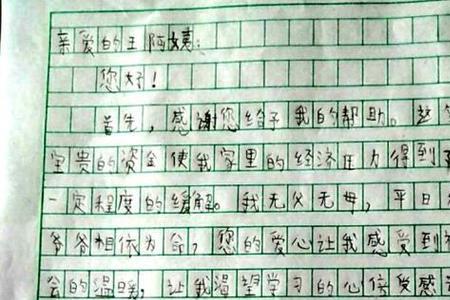 亲爱的王阿姨：
您好！
首先，感谢您给予我的帮助。这笔
宝贵的资金使我家里的经济压力得到了
一定程度的缓解。我无父无母，平日
爷爷相依为命，您的爱心让我感受到
会的温暖，让我渴望学习的心倍受感